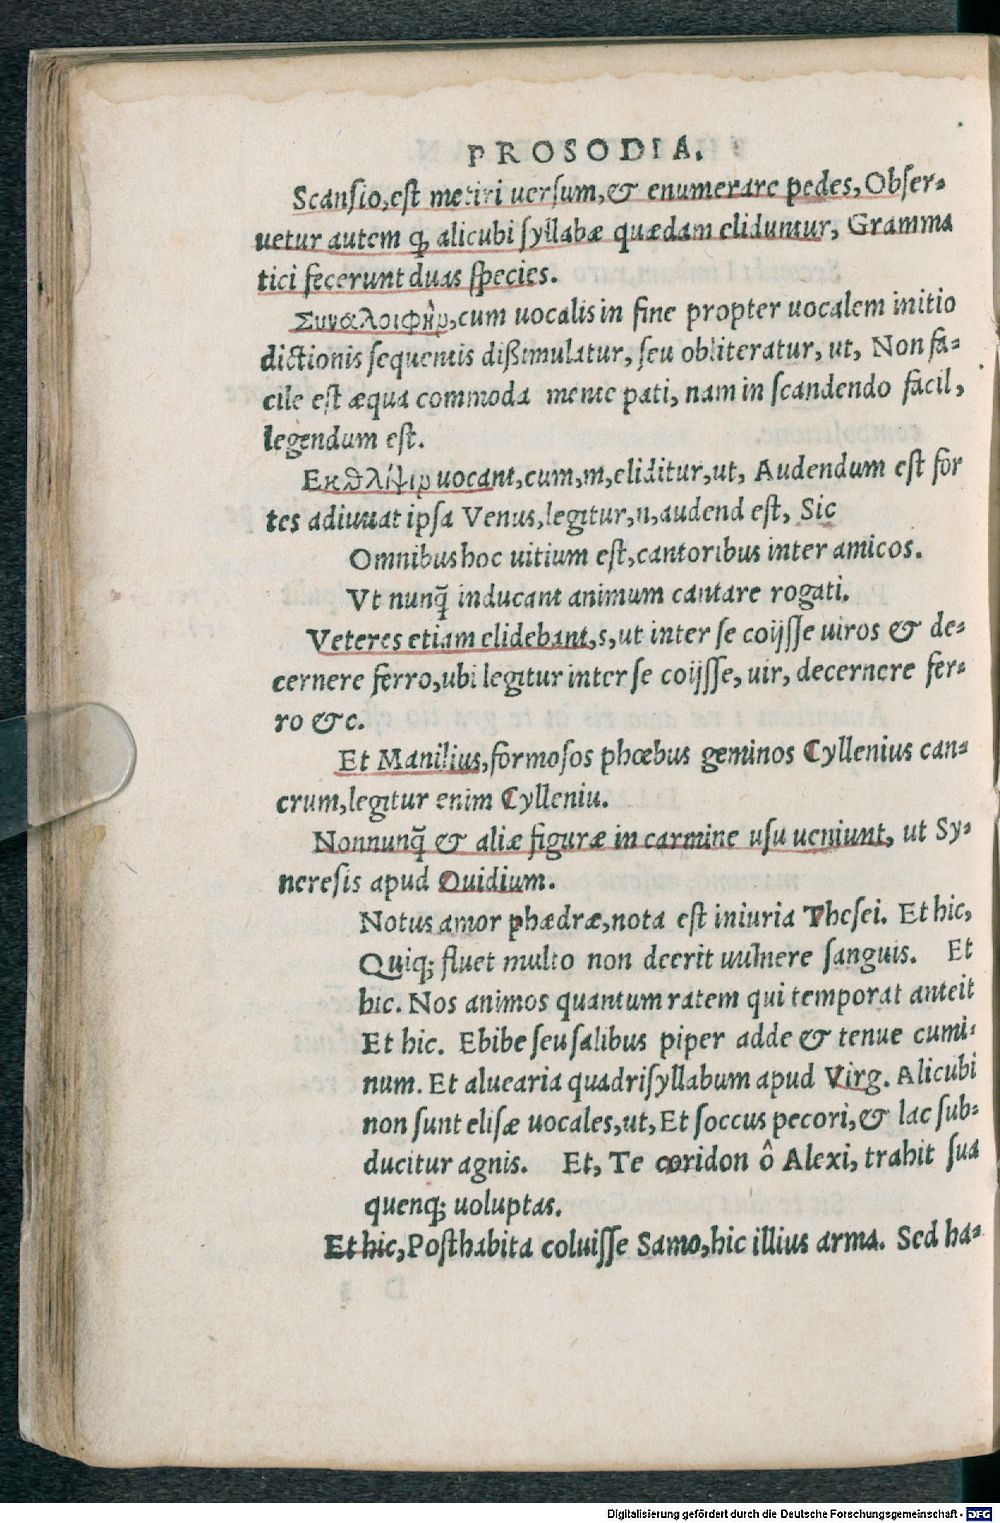 PROSODIA.
Scansio, est metiri uersum, & enumerare pedes, Obser-
uetur autem q, alicubi syllabæ quædam eliduntur, Gramma
tici fecerunt duas species.
Συναλοιφὴρ, cum uocalis in fine propter uocalem initio
dictionis sequentis dißimulatur, seu obliteratur, ut, Non fa-
cile est æqua commoda mente pati, nam in scandendo facil,
legendum est.
Εκθλίψιρ uocant, cum, m, eliditur, ut, Audendum est for
tes adiuuat ipsa Venus, legitur, n, audend est, Sic
Omnibus hoc uitium est, cantoribus inter amicos.
Vt nunq̃ inducant animum cantare rogati.
Veteres etiam elidebant, s, ut inter se coijsse uiros & de-
cernere ferro, ubi legitur inter se coijsse, uir, decernere fer-
ro &c.
Et Manilius, formosos phœbus geminos Cyllenius can-
crum, legitur enim Cylleniu.
Nonnunq̃ & aliæ figuræ in carmine usu ueniunt, ut Sy-
neresis apud Ouidium.
Notus amor phædræ, nota est iniuria Thesei. Et hic,
Quiq; fluet multo non deerit uulnere sanguis. Et
hic. Nos animos quantum ratem qui temporat anteit
Et hic. Ebibe seu salibus piper adde & tenue cumi-
num. Et aluearia quadrisyllabum apud Virg. Alicubi
non sunt elisæ uocales, ut, Et soccus pecori, & lac sub-
ducitur agnis. Et, Te coridon ô Alexi, trahit sua
quenq; uoluptas.
Et hic, Posthabita coluisse Samo, hic illius arma. Sed ha-
Digitalisierung gefördert durch die Deutsche Forschungsgemeinschaft - DFG